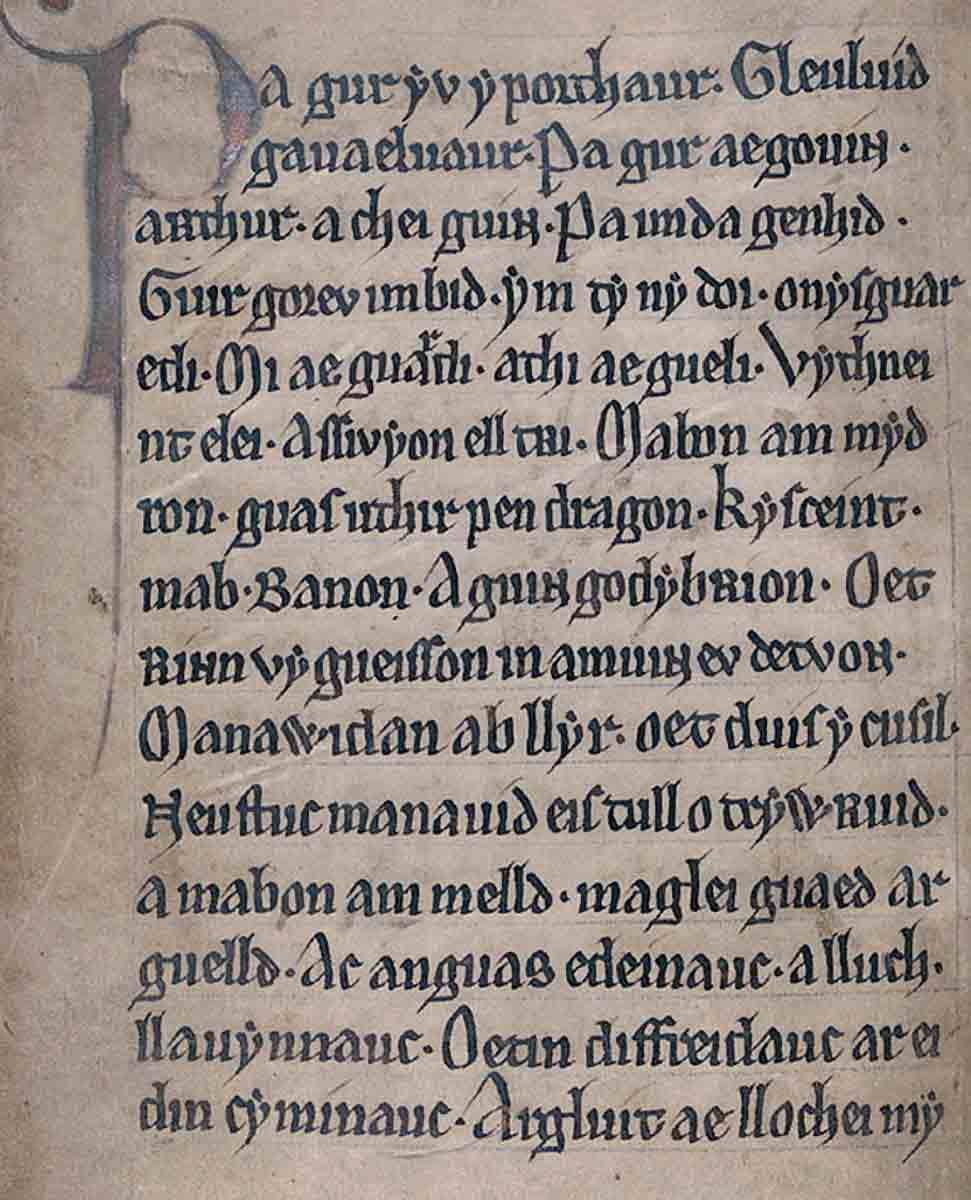 Pa gur ẏv ẏ porthaur. Gleuluid
gauaeluaur. Pa gur ae gouin.
arthur. a chei guin. Pa imda genhid.
Guir gorev im bid. ẏm tẏ nẏ doi. onẏs guar
edi. Mi ae guardi. athi ae gueli. Vẏthnei
nt elei. Assivẏon ell tri. Mabon am mẏd
ron. guas uthir pen dragon. kẏsceint.
mab. Banon. A guin godẏbrion. Oet
rinn vẏ gueisson in amuin ev detvon.
Manawidan ab llẏr. oet duis ẏ cusil.
Neustuc manauid eis tull o trẏwruid.
a mabon am melld. maglei guaed ar
guelld. Ac anguas edeinauc. a lluch.
llauẏnnauc. Oetin diffreidauc ar ei
din cẏminauc. Argluit ae llochei mẏ